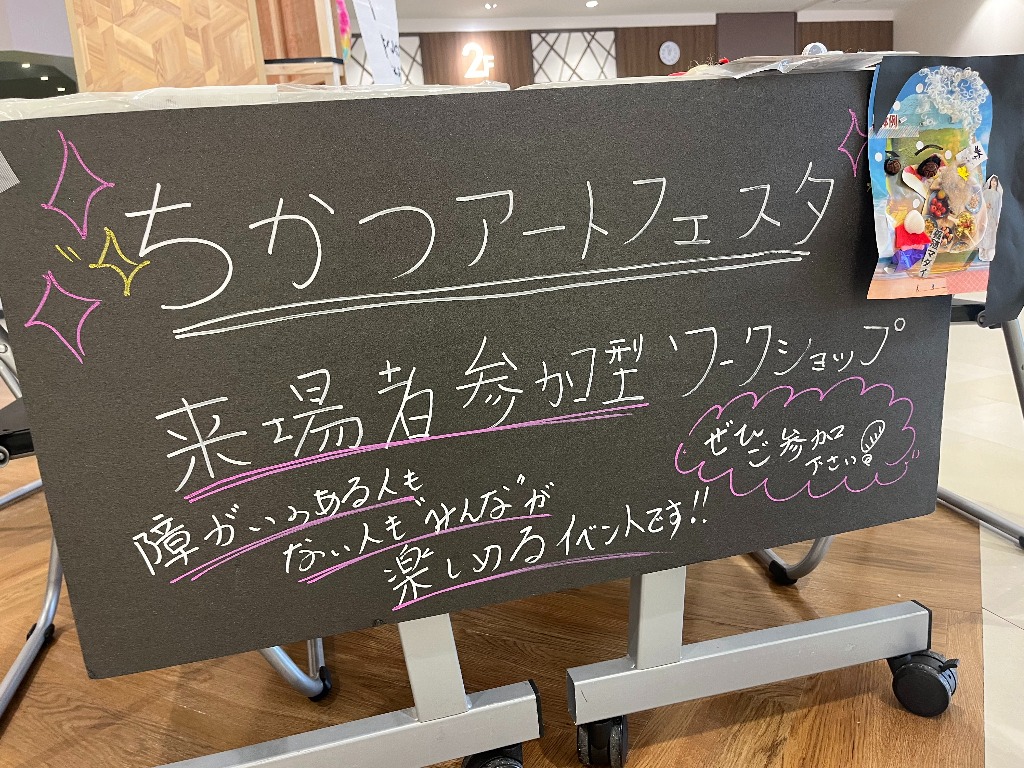 2F
ちかつアートフェスタ
来場者参加型ワークショップ
ぜひ
ご参加
下さい
障がいのある人も
ない人も"みんな"が
楽しめるイベントです!!